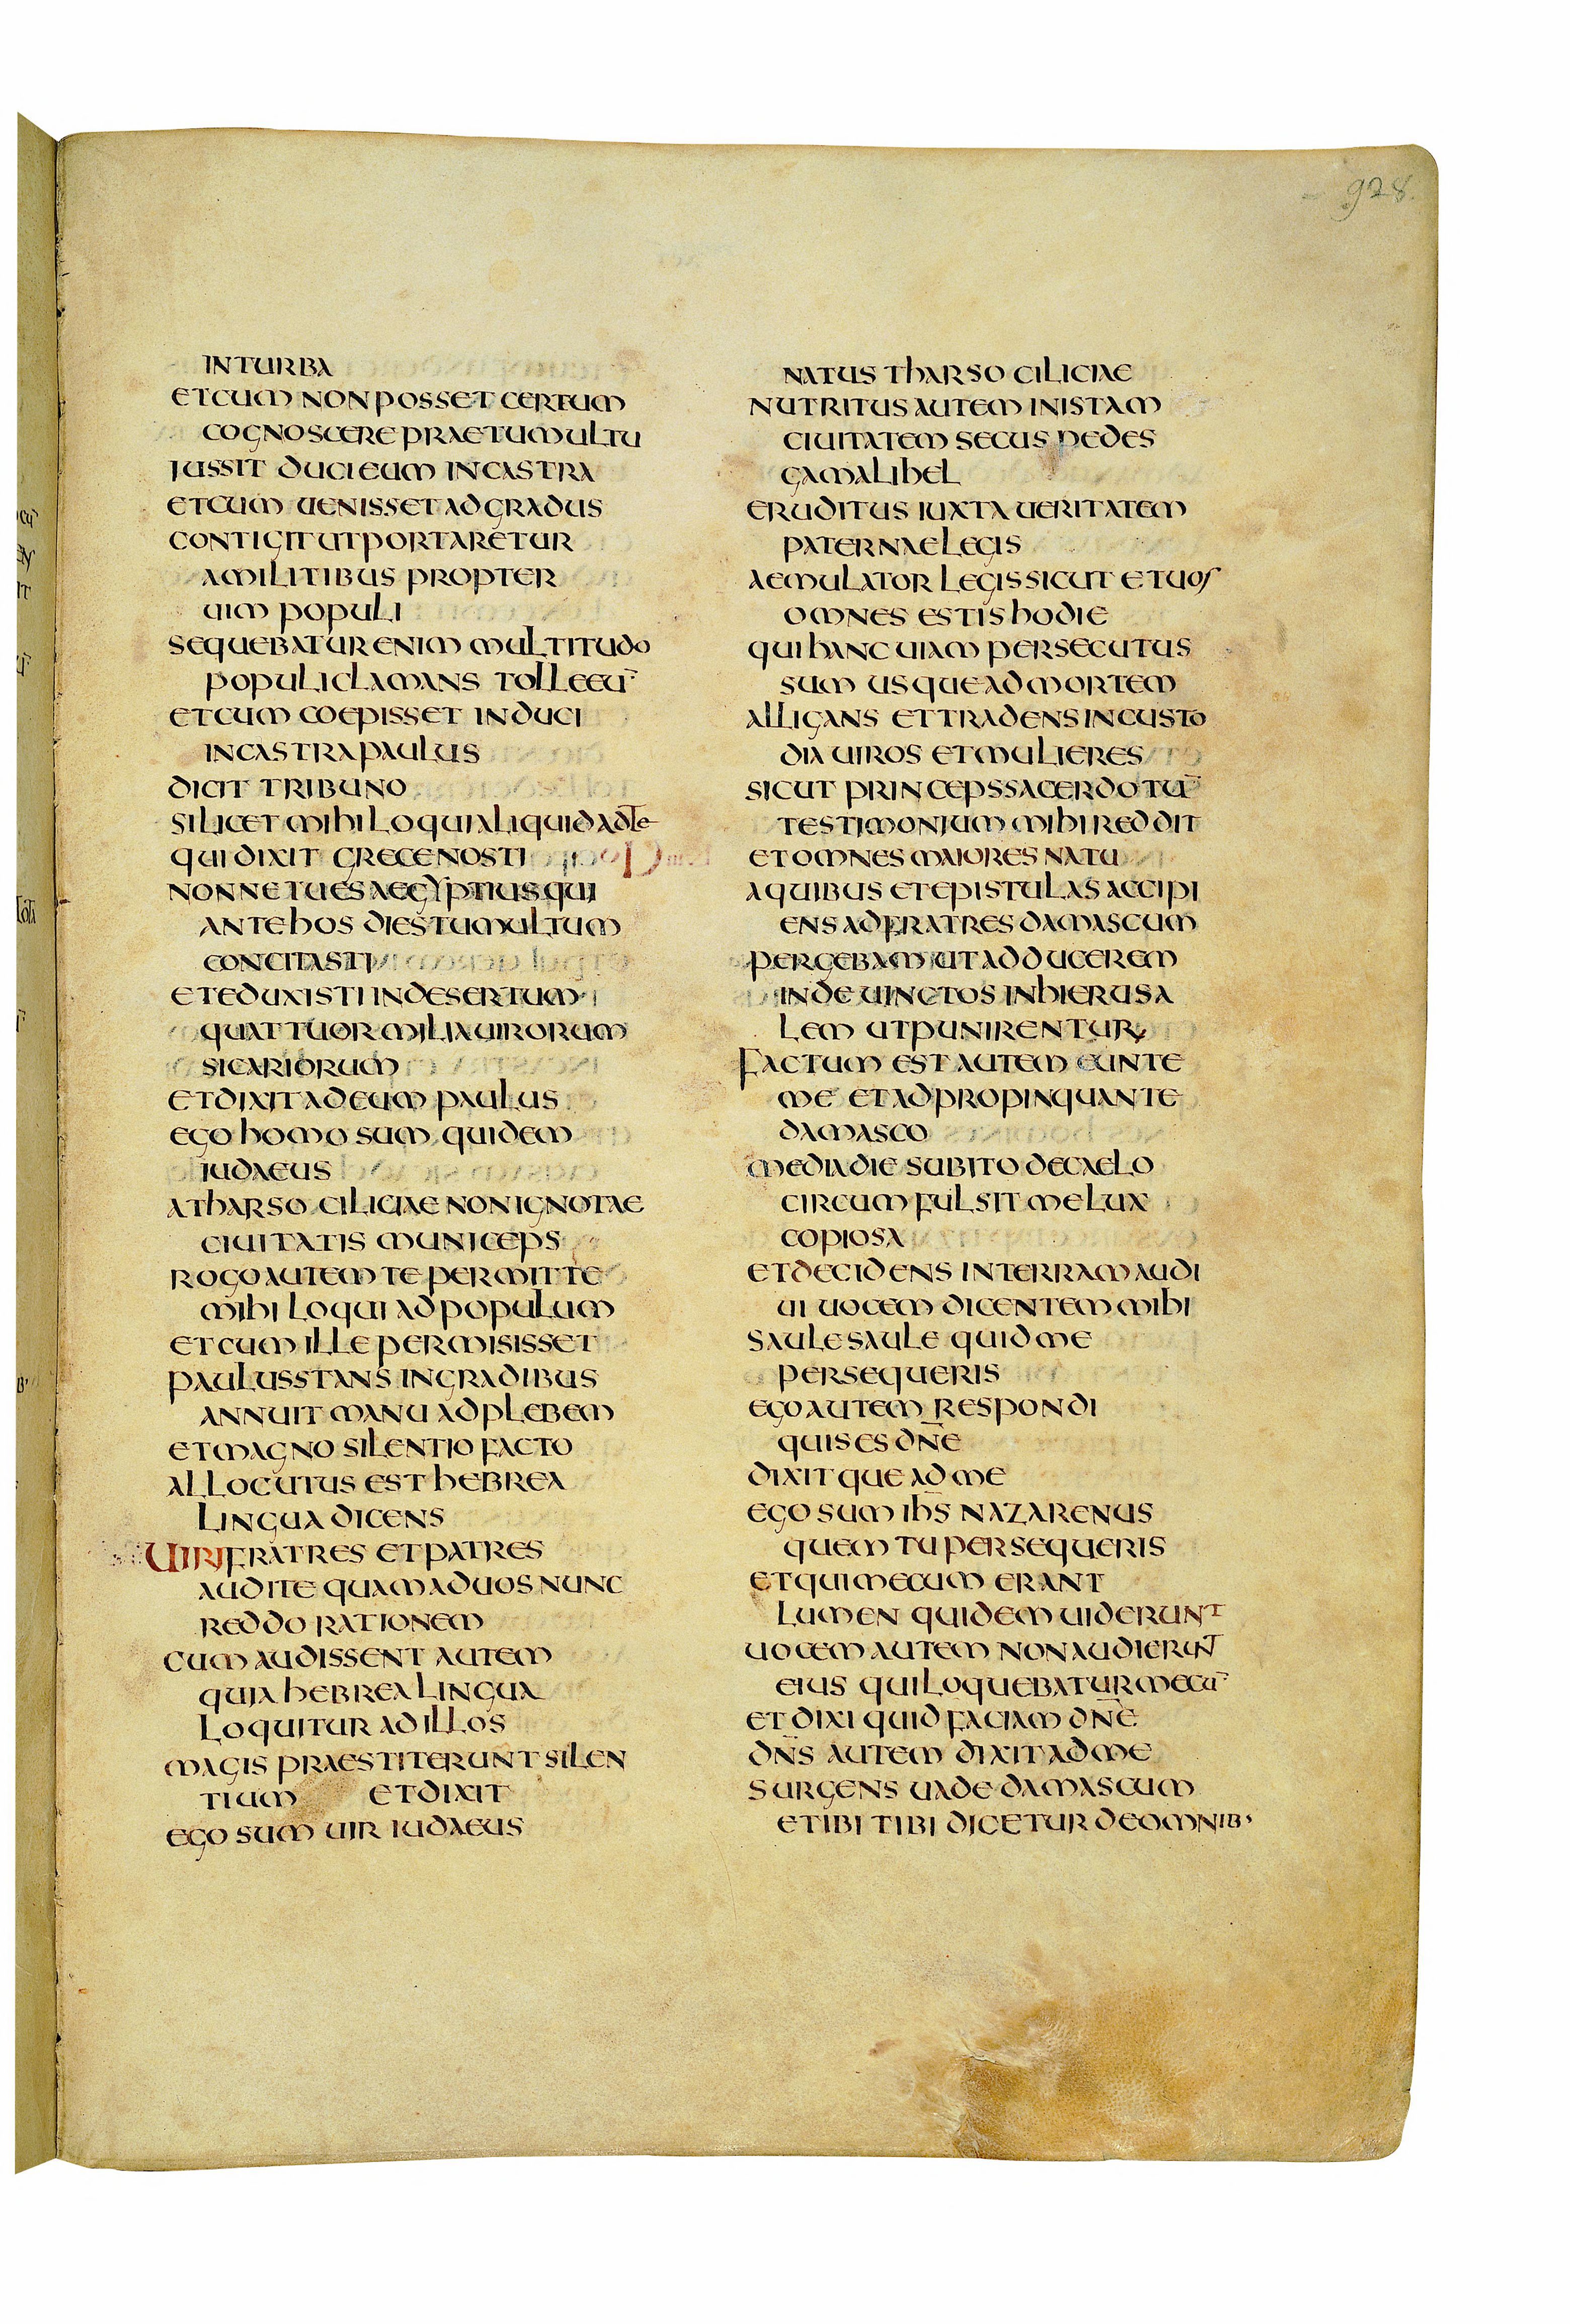 928.
IN TURBA
ET CUM NON POSSET CERTUM
COGNOSCERE PRAE TUMULTU
IUSSIT DUCI EUM IN CASTRA
ET CUM UENISSET AD GRADUS
CONTIGIT UT PORTARETUR
A MILITIBUS PROPTER
UIM POPULI
SEQUEBATUR ENIM MULTITUDO
POPULI CLAMANS TOLLE EŪ
ET CUM COEPISSET INDUCI
IN CASTRA PAULUS
DICIT TRIBUNO
SI LICET MIHI LOQUI ALIQUID AD TE
QUI DIXIT GRECE NOSTI
NONNE TU ES AEGYPTIUS QUI
ANTE HOS DIES TUMULTUM
CONCITASTI
ET EDUXISTI IN DESERTUM
QUATTUOR MILIA UIRORUM
SICARIORUM
ET DIXIT AD EUM PAULUS
EGO HOMO SUM QUIDEM
IUDAEUS
A THARSO CILICIAE NON IGNOTAE
CIUITATIS MUNICEPS
ROGO AUTEM TE PERMITTE
MIHI LOQUI AD POPULUM
ET CUM ILLE PERMISISSET
PAULUS STANS IN GRADIBUS
ANNUIT MANU AD PLEBEM
ET MAGNO SILENTIO FACTO
ALLOCUTUS EST HEBREA
LINGUA DICENS
UIRI FRATRES ET PATRES
AUDITE QUAM AD UOS NUNC
REDDO RATIONEM
CUM AUDISSENT AUTEM
QUIA HEBREA LINGUA
LOQUITUR AD ILLOS
MAGIS PRAESTITERUNT SILEN
TIUM ET DIXIT
EGO SUM UIR IUDAEUS
NATUS THARSO CILICIAE
NUTRITUS AUTEM IN ISTAM
CIUITATEM SECUS PEDES
GAMALIHEL
ERUDITUS IUXTA UERITATEM
PATERNAE LEGIS
AEMULATOR LEGIS SICUT ET UOS
OMNES ESTIS HODIE
QUI HANC UIAM PERSECUTUS
SUM USQUE AD MORTEM
ALLIGANS ET TRADENS IN CUSTO
DIA UIROS ET MULIERES
SICUT PRINCEPS SACERDOTŪ
TESTIMONIUM MIHI REDDIT
ET OMNES MAIORES NATU
A QUIBUS ET EPISTULAS ACCIPI
ENS AD FRATRES DAMASCUM
PERGEBAM UT ADDUCEREM
INDE UINCTOS IN HIERUSA
LEM UT PUNIRENTUR
FACTUM EST AUTEM EUNTE
ME ET ADPROPINQUANTE
DAMASCO
MEDIA DIE SUBITO DE CAELO
CIRCUMFULSIT ME LUX
COPIOSA
ET DECIDENS IN TERRAM AUDI
UI UOCEM DICENTEM MIHI
SAULE SAULE QUID ME
PERSEQUERIS
EGO AUTEM RESPONDI
QUIS ES DN̄E
DIXITQUE AD ME
EGO SUM IH̄S NAZARENUS
QUEM TU PERSEQUERIS
ET QUI MECUM ERANT
LUMEN QUIDEM UIDERUNT
UOCEM AUTEM NON AUDIERUNT
EIUS QUI LOQUEBATUR MECŪ
ET DIXI QUID FACIAM DN̄E
DN̄S AUTEM DIXIT AD ME
SURGENS UADE DAMASCUM
ET IBI TIBI DICETUR DE OMNIB,